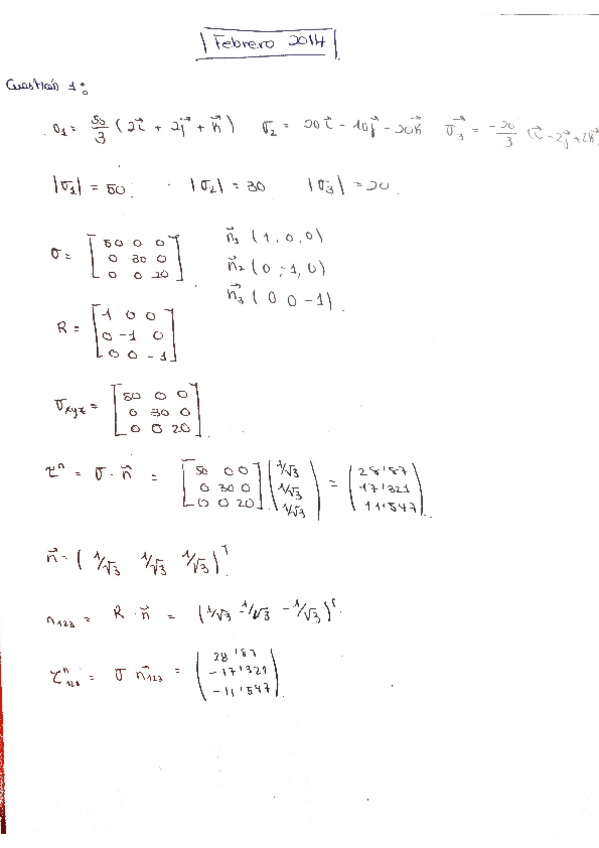 Febrero 2014
Cuestión 1:
σ₁ = 50/3 (2i⃗ + 2j⃗ + k⃗) σ₂ = 20i⃗ - 10j⃗ - 20k⃗ σ⃗₃ = -20/3 (i⃗ - 2j⃗ + 2k⃗)
|σ₁| = 50. · |σ₂| = 30 |σ₃| = 20.
σ = [50 0 0; 0 30 0; 0 0 20] n⃗₁ (1, 0, 0)
n⃗₂ (0, -1, 0)
n⃗₃ (0 0 -1).
R = [1 0 0; 0 -1 0; 0 0 -1]
σxyz = [50 0 0; 0 30 0; 0 0 20].
τⁿ = σ · n⃗ = [50 0 0; 0 30 0; 0 0 20] (1/√3; 1/√3; 1/√3) = (28'87; 17'321; 11'547).
n⃗ = (1/√3 1/√3 1/√3)ᵀ.
n₁₂₃ = R · n⃗ = (1/√3 -1/√3 -1/√3)ᵀ.
τⁿ₁₂₃ = σ n⃗₁₂₃ = (28'87; -17'321; -11'547).